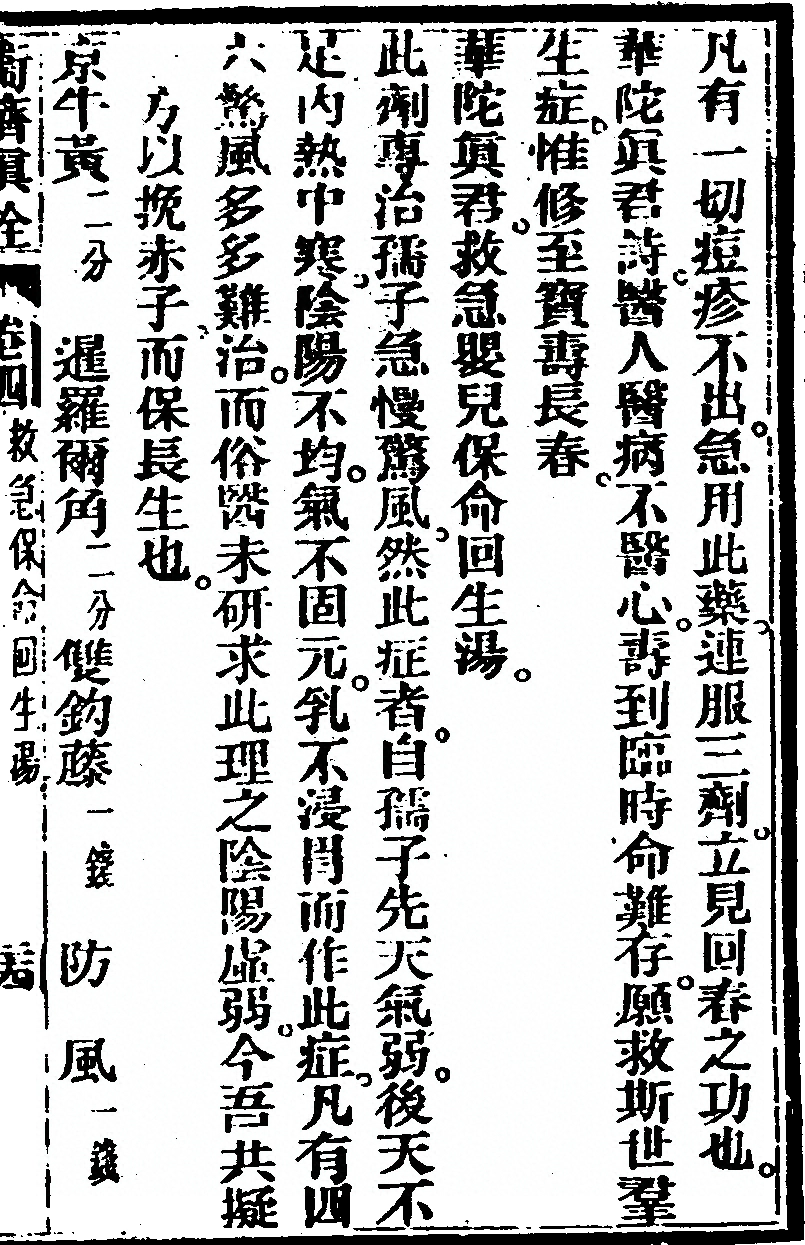 凡有一切痘疹不出。急用此藥、連服三劑、立見回春之功也。
華陀眞君詩、醫人醫病不醫心。壽到臨時命難存。願救斯世羣
生症、惟修至寶壽長春、
華陀眞君、救急嬰兒保命回生湯。
此劑專治孺子急慢驚風、然此症者。自孺子先天氣弱。後天不
足內熱中寒、陰陽不均。氣不固元。乳不浸胃而作此症、凡有四
六驚風多多難治。而俗醫未研求此理之陰陽虛弱、今吾共擬
方以挽赤子、而保長生也。
京牛黃二分 暹羅爾角二分 雙鈎藤一錢 防風一錢
濟眞全 卷四 救急保命回生湯